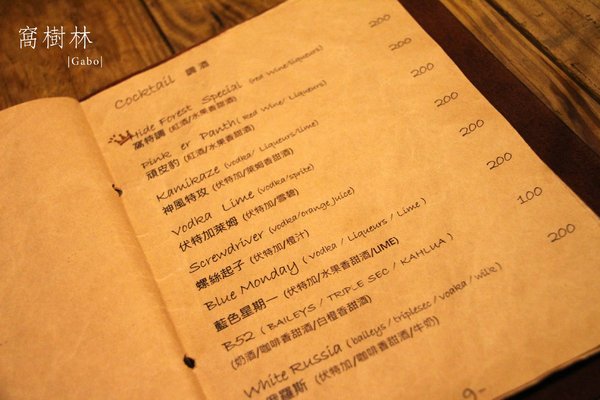 窩樹林
|Gabo|
Cocktail 調酒
Hide Forest Special (red wine/liqueurs) 200
窩特調 (紅酒/水果香甜酒)
Pink er Panth(Red Wine/ Liqueurs) 200
頑皮豹 (紅酒/水果香甜酒)
Kamikaze (vodka/ Liqueurs/lime) 200
神風特攻 (伏特加/萊姆香甜酒)
Vodka Lime (vodka/sprite) 200
伏特加萊姆 (伏特加/雪碧)
Screwdriver (vodka/orange juice) 200
螺絲起子 (伏特加/橙汁)
Blue Monday (vodka / Liqueurs / Lime) 200
藍色星期一 (伏特加/水果香甜酒/LIME)
B52 (BAILEYS / TRIPLE SEC / KAHLUA) 100
(奶酒/咖啡香甜酒/白橙香甜酒)
White Russia (baileys/triplesec/vodka/milk) 200
俄羅斯 (伏特加/咖啡香甜酒/牛奶)
9-